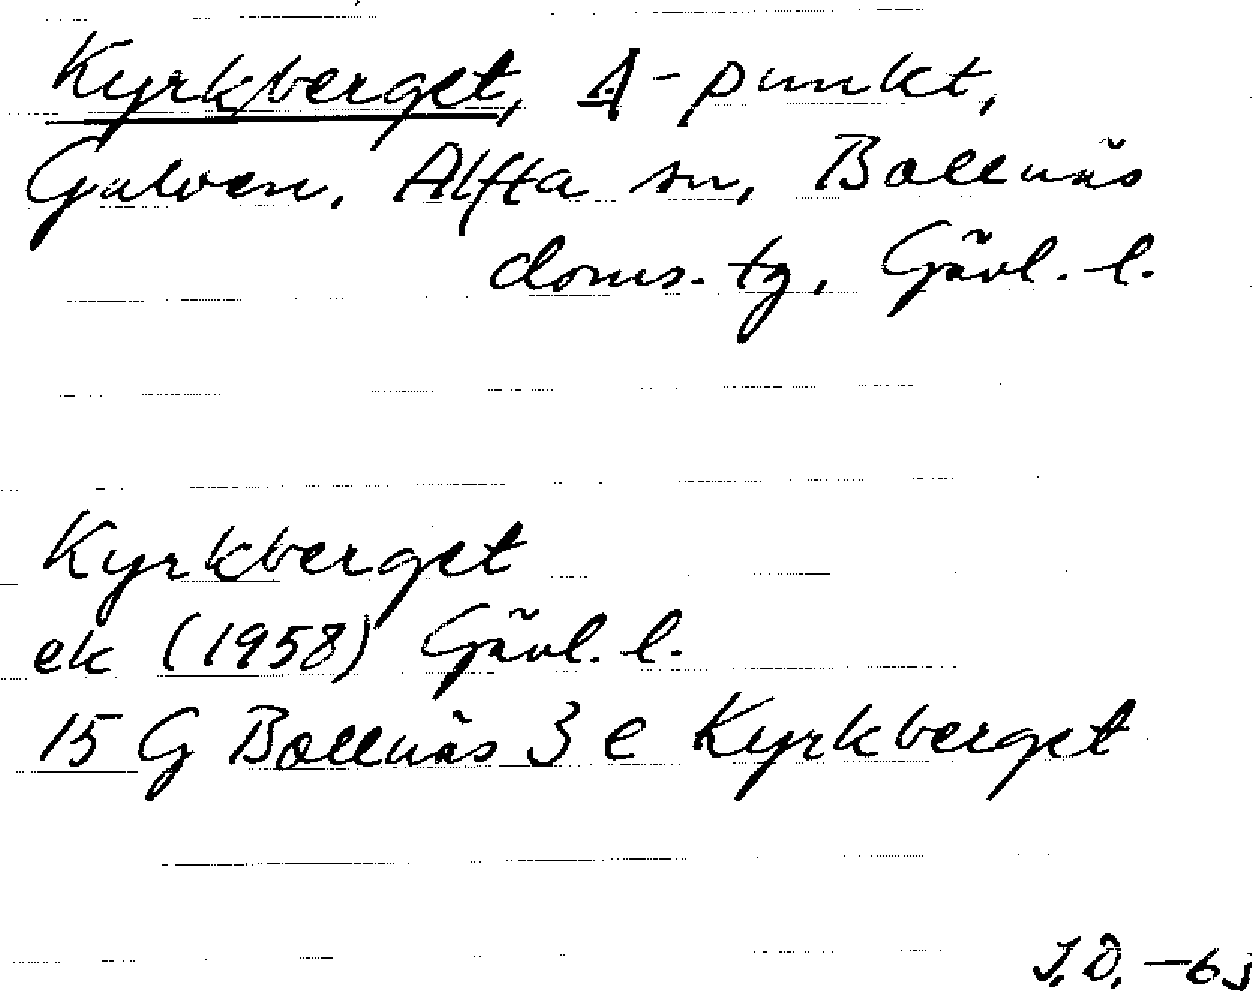 Kyrkberget, Δ-punkt,
Galven, Alfta sn, Bollnäs
doms. tg, Gävl. l.
Kyrkberget
ek (1958) Gävl. l.
15 G Bollnäs 3 e Kyrkberget
J.D. -63